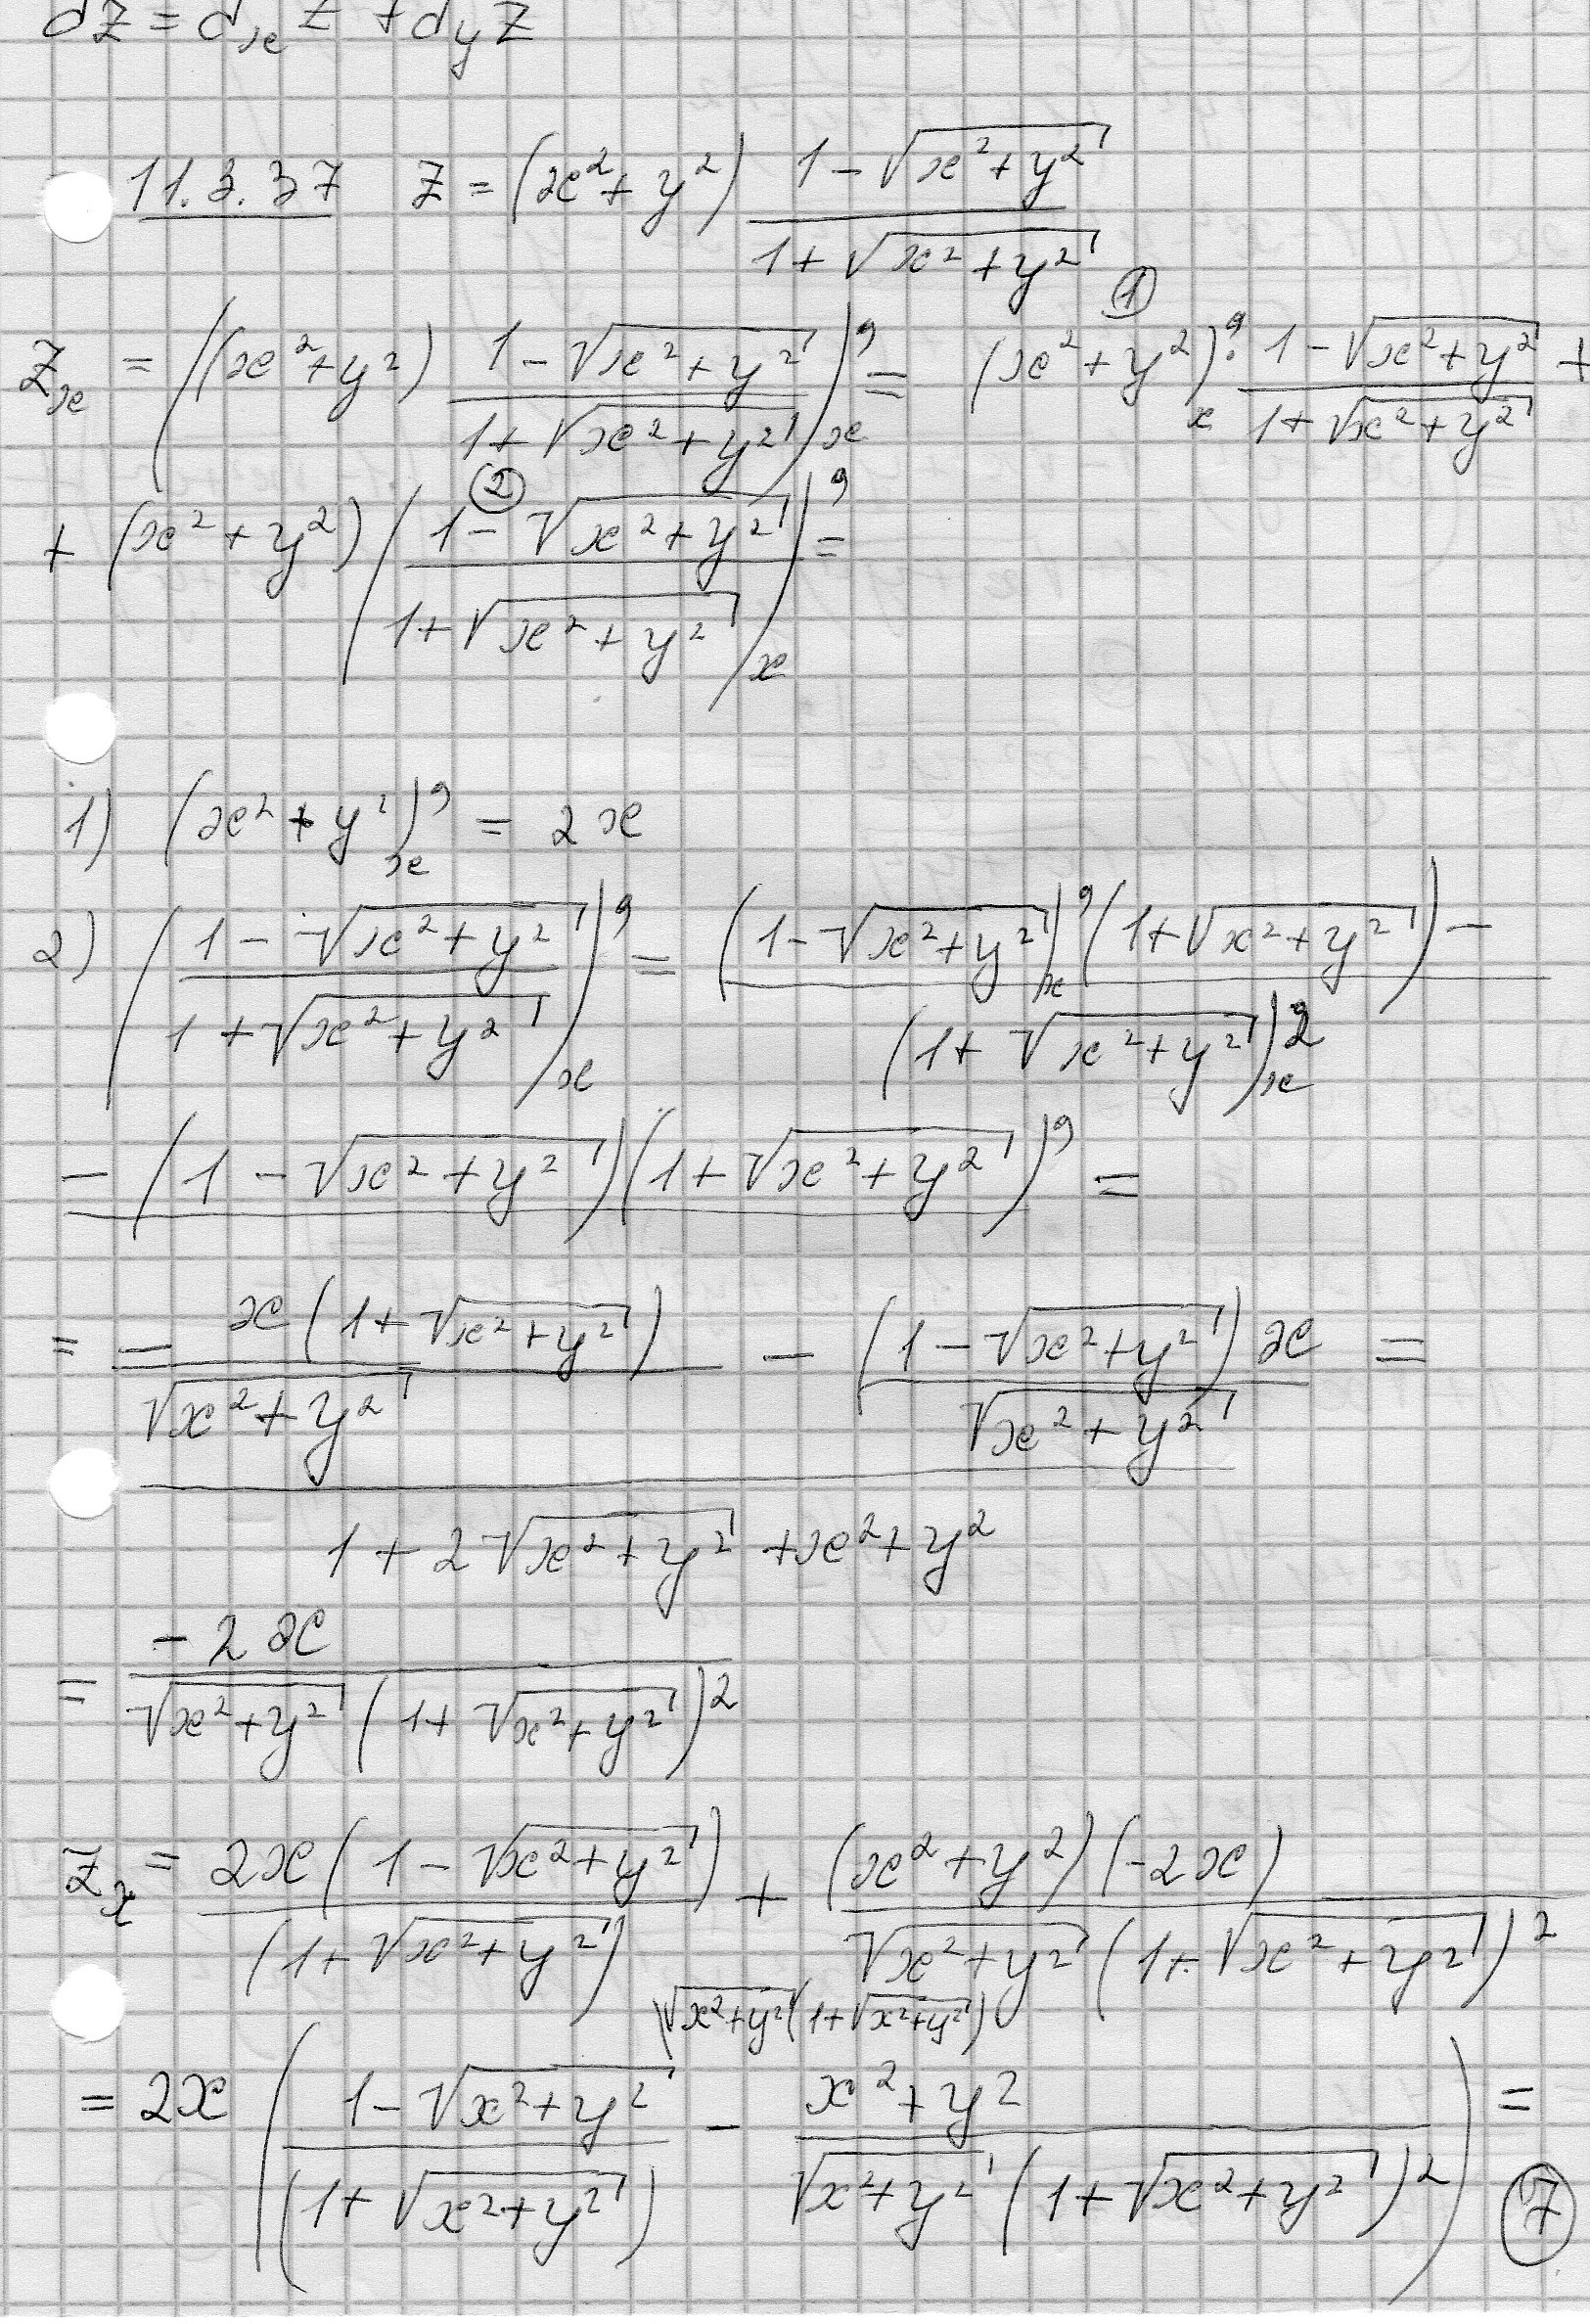 dz = dₓz + d_y z
11.3.37 z = (x² + y²) (1 - √(x² + y²))/(1 + √(x² + y²))
zₓ = ((x² + y²) (1 - √(x² + y²))/(1 + √(x² + y²)))'ₓ = (x² + y²)'ₓ ① · (1 - √(x² + y²))/(1 + √(x² + y²)) +
+ (x² + y²) ((1 - √(x² + y²))/(1 + √(x² + y²)))'ₓ ② =
1) (x² + y²)'ₓ = 2x
2) ((1 - √(x² + y²))/(1 + √(x² + y²)))'ₓ = ((1 - √(x² + y²))'ₓ (1 + √(x² + y²)) -)/(1 + √(x² + y²))²ₓ
- (1 - √(x² + y²))(1 + √(x² + y²))' =
= (- x(1 + √(x² + y²))/√(x² + y²) - (1 - √(x² + y²))x/√(x² + y²))/(1 + 2√(x² + y²) + x² + y²) =
= -2x/(√(x² + y²) (1 + √(x² + y²))²)
zₓ = 2x(1 - √(x² + y²))/(1 + √(x² + y²)) + (x² + y²)(-2x)/(√(x² + y²) (1 + √(x² + y²))²)
\√(x² + y²)(1 + √(x² + y²))
= 2x ((1 - √(x² + y²))/(1 + √(x² + y²)) - (x² + y²)/(√(x² + y²) (1 + √(x² + y²))²)) =
⑦